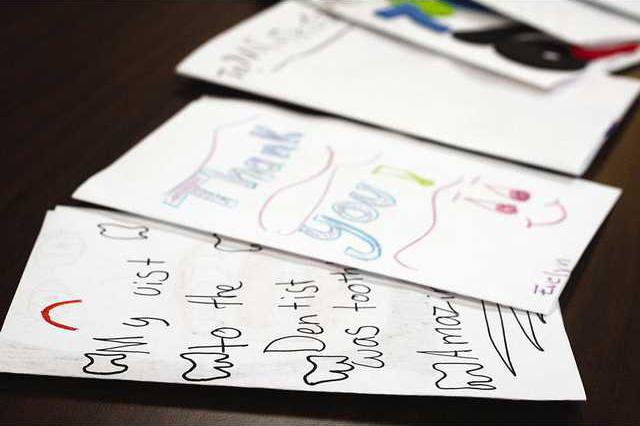 Thank
you!
Evelyn
My vist
to the
Dentist
was tooth
Amazin